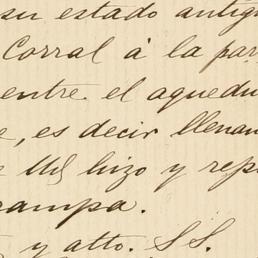 su estado antigu
Corral á la par
entre el aquedu
e, es decir llenan
e Ud hizo y rep
rampa.
y atto. S S.